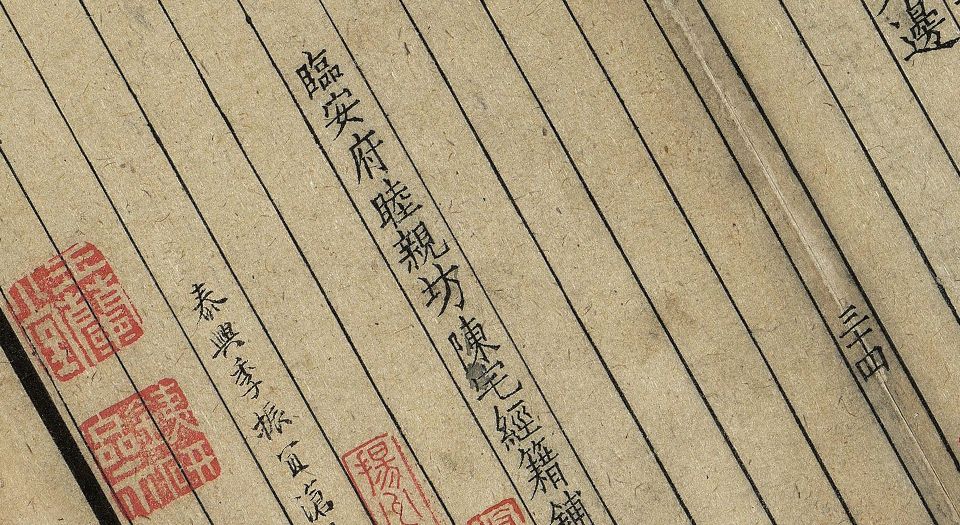 邊
三十四
臨安府睦親坊陳宅經籍鋪
泰興季振宜滄